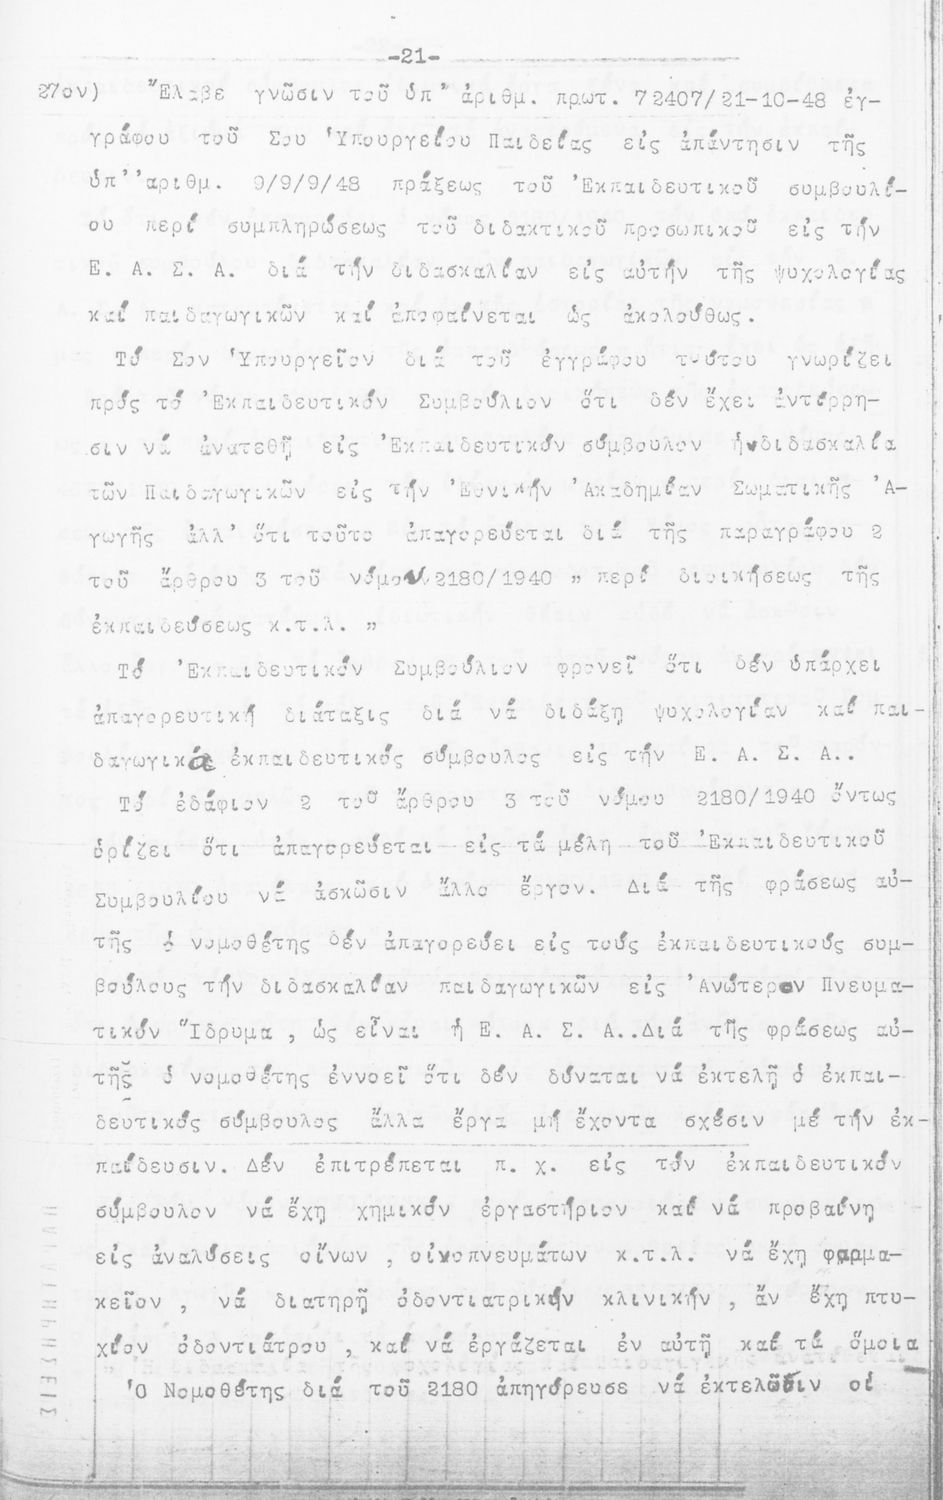 -21-
27ον) "Ελαβε γνῶσιν τοῦ ὑπ' ἀριθμ. πρωτ. 72407/21-10-48 ἐγ-
γράφου τοῦ Σου Ὑπουργείου Παιδείας εἰς ἀπάντησιν τῆς
ὑπ''αριθμ. 9/9/9/48 πράξεως τοῦ Ἐκπαιδευτικοῦ συμβουλί-
ου περί συμπληρώσεως τοῦ διδακτικοῦ προσωπικοῦ εἰς τήν
Ε. Α. Σ. Α. διά τήν διδασκαλίαν εἰς αὐτήν τῆς ψυχολογίας
καί παιδαγωγικῶν καί ἀποφαίνεται ὡς ἀκολούθως.
Τό Σον Ὑπουργεῖον διά τοῦ ἐγγράφου τούτου γνωρίζει
πρός τό Ἐκπαιδευτικόν Συμβούλιον ὅτι δέν ἔχει ἀντίρρη-
σιν νά ἀνατεθῇ εἰς Ἐκπαιδευτικόν σύμβουλον ἡ διδασκαλία
τῶν Παιδαγωγικῶν εἰς τήν Ἐθνικήν Ἀκαδημίαν Σωματικῆς Ἀ-
γωγῆς ἀλλ' ὅτι τοῦτο ἀπαγορεύεται διά τῆς παραγράφου 2
τοῦ ἄρθρου 3 τοῦ νόμου 2180/1940 " περί διοικήσεως τῆς
ἐκπαιδεύσεως κ.τ.λ. "
Τό Ἐκπαιδευτικόν Συμβούλιον φρονεῖ ὅτι δέν ὑπάρχει
ἀπαγορευτική διάταξις διά νά διδάξῃ ψυχολογίαν καί παι-
δαγωγικά ἐκπαιδευτικός σύμβουλος εἰς τήν Ε. Α. Σ. Α..
Τό ἐδάφιον 2 τοῦ ἄρθρου 3 τοῦ νόμου 2180/1940 ὄντως
ὁρίζει ὅτι ἀπαγορεύεται εἰς τά μέλη τοῦ Ἐκπαιδευτικοῦ
Συμβουλίου νά ἀσκῶσιν ἄλλο ἔργον. Διά τῆς φράσεως αὐ-
τῆς ὁ νομοθέτης δέν ἀπαγορεύει εἰς τούς ἐκπαιδευτικούς συμ-
βούλους τήν διδασκαλίαν παιδαγωγικῶν εἰς Ἀνώτερον Πνευμα-
τικόν Ἵδρυμα , ὡς εἶναι ἡ Ε. Α. Σ. Α..Διά τῆς φράσεως αὐ-
τῆς ὁ νομοθέτης ἐννοεῖ ὅτι δέν δύναται νά ἐκτελῇ ὁ ἐκπαι-
δευτικός σύμβουλος ἄλλα ἔργα μή ἔχοντα σχέσιν μέ τήν ἐκ-
παίδευσιν. Δέν ἐπιτρέπεται π. χ. εἰς τόν ἐκπαιδευτικόν
σύμβουλον νά ἔχῃ χημικόν ἐργαστήριον καί νά προβαίνῃ
εἰς ἀναλύσεις οἴνων , οἰνοπνευμάτων κ.τ.λ. νά ἔχῃ φαρμα-
κεῖον , νά διατηρῇ ὀδοντιατρικήν κλινικήν , ἄν ἔχῃ πτυ-
χίον ὀδοντιάτρου , καί νά ἐργάζεται ἐν αὐτῇ καί τά ὅμοια
Ὁ Νομοθέτης διά τοῦ 2180 ἀπηγόρευσε νά ἐκτελῶσιν οἱ